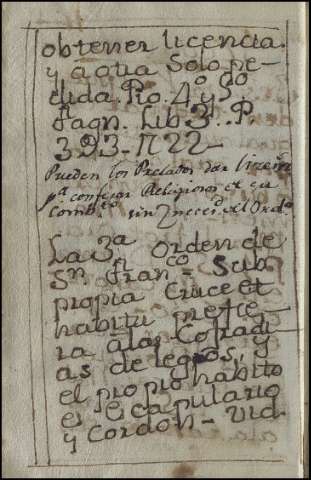 obtener licencia.
y a otra Solo pe-
dida. Pio. 4º y 5º
fagn. Lib 3. P.
393. n 22 –
Pueden los Prelados dar licen
pª confesar Religiosos et ca
La 3ª Orden de
Sn. Franco = Sub
propia Cruce et
habitu prefie
ra a las Cofradi
as de legos, y
el propio habito
es Escapulario
y Cordon – Vid.